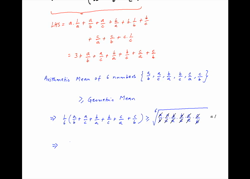 LHS = a·1/a + a/b + a/c + b/a + b·1/b + b/c
+ c/a + c/b + c·1/c
= 3 + a/b + a/c + b/a + b/c + c/a + c/b
Arithmetic Mean of 6 numbers {a/b, a/c, b/a, b/c, c/a, c/b}
≥ Geometric Mean
⇒ 1/6 (a/b + a/c + b/a + b/c + c/a + c/b) ≥
⇒